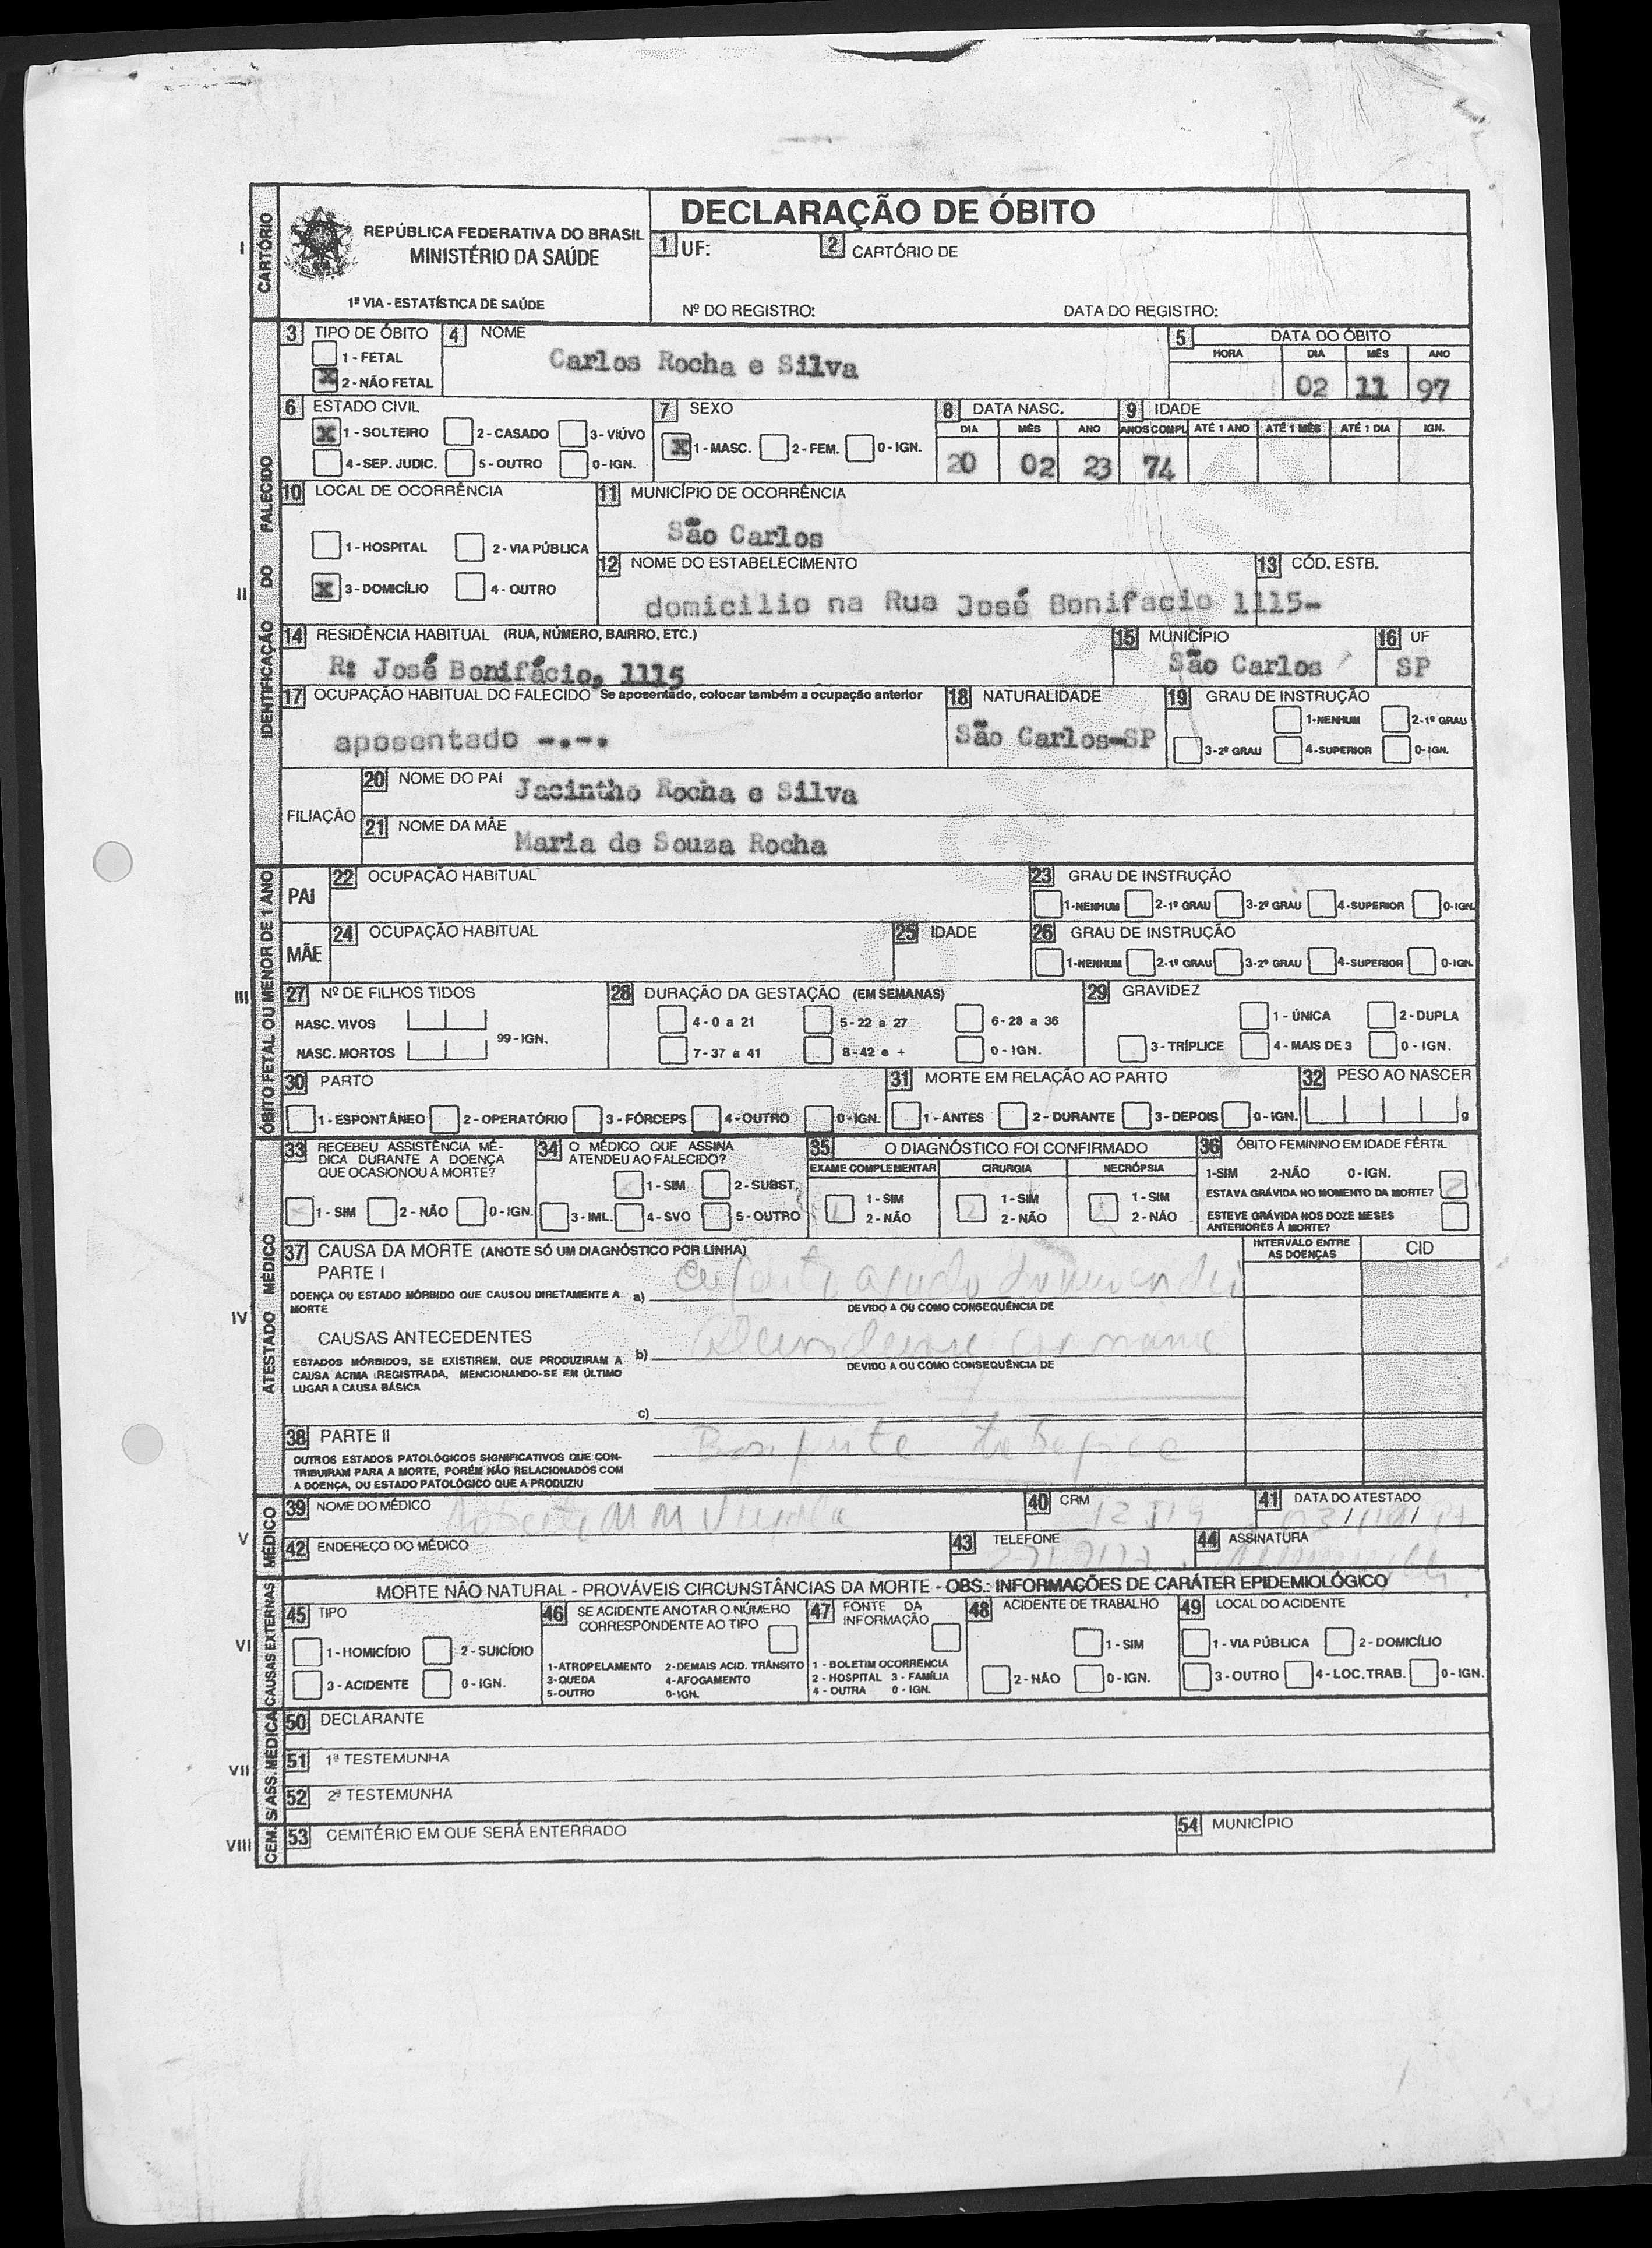 I
CARTÓRIO
REPÚBLICA FEDERATIVA DO BRASIL
MINISTÉRIO DA SAÚDE
1ª VIA - ESTATÍSTICA DE SAÚDE
DECLARAÇÃO DE ÓBITO
1 UF: 2 CARTÓRIO DE
Nº DO REGISTRO: DATA DO REGISTRO:
II
IDENTIFICAÇÃO DO FALECIDO
3 TIPO DE ÓBITO
1 - FETAL
X 2 - NÃO FETAL
4 NOME
Carlos Rocha e Silva
5 DATA DO ÓBITO
HORA DIA MÊS ANO
02 11 97
6 ESTADO CIVIL
X 1 - SOLTEIRO 2 - CASADO 3 - VIÚVO
4 - SEP. JUDIC. 5 - OUTRO 0 - IGN.
7 SEXO
X 1 - MASC. 2 - FEM. 0 - IGN.
8 DATA NASC.
DIA MÊS ANO
20 02 23
9 IDADE
ANOS COMPL. ATÉ 1 ANO ATÉ 1 MÊS ATÉ 1 DIA IGN.
74
10 LOCAL DE OCORRÊNCIA
1 - HOSPITAL 2 - VIA PÚBLICA
X 3 - DOMICÍLIO 4 - OUTRO
11 MUNICÍPIO DE OCORRÊNCIA
São Carlos
12 NOME DO ESTABELECIMENTO 13 CÓD. ESTB.
domicilio na Rua José Bonifacio 1115-
14 RESIDÊNCIA HABITUAL (RUA, NÚMERO, BAIRRO, ETC.)
R: José Bonifácio, 1115
15 MUNICÍPIO
São Carlos
16 UF
SP
17 OCUPAÇÃO HABITUAL DO FALECIDO Se aposentado, colocar também a ocupação anterior
aposentado -.-.
18 NATURALIDADE
São Carlos-SP
19 GRAU DE INSTRUÇÃO
1-NENHUM 2-1º GRAU
3-2º GRAU 4-SUPERIOR 0-IGN.
FILIAÇÃO
20 NOME DO PAI Jacintho Rocha e Silva
21 NOME DA MÃE Maria de Souza Rocha
III
ÓBITO FETAL OU MENOR DE 1 ANO
PAI
22 OCUPAÇÃO HABITUAL
23 GRAU DE INSTRUÇÃO
1-NENHUM 2-1º GRAU 3-2º GRAU 4-SUPERIOR 0-IGN.
MÃE
24 OCUPAÇÃO HABITUAL
25 IDADE
26 GRAU DE INSTRUÇÃO
1-NENHUM 2-1º GRAU 3-2º GRAU 4-SUPERIOR 0-IGN.
27 Nº DE FILHOS TIDOS
NASC. VIVOS
NASC. MORTOS
99 - IGN.
28 DURAÇÃO DA GESTAÇÃO (EM SEMANAS)
4 - 0 a 21 5 - 22 a 27 6 - 28 a 36
7 - 37 a 41 8 - 42 e + 0 - IGN.
29 GRAVIDEZ
1 - ÚNICA 2 - DUPLA
3 - TRÍPLICE 4 - MAIS DE 3 0 - IGN.
30 PARTO
1 - ESPONTÂNEO 2 - OPERATÓRIO 3 - FÓRCEPS 4 - OUTRO 0 - IGN.
31 MORTE EM RELAÇÃO AO PARTO
1 - ANTES 2 - DURANTE 3 - DEPOIS 0 - IGN.
32 PESO AO NASCER
g
IV
ATESTADO MÉDICO
33 RECEBEU ASSISTÊNCIA MÉ-
DICA DURANTE A DOENÇA
QUE OCASIONOU A MORTE?
1 - SIM 2 - NÃO 0 - IGN.
34 O MÉDICO QUE ASSINA
ATENDEU AO FALECIDO?
1 - SIM 2 - SUBST.
3 - IML. 4 - SVO 5 - OUTRO
35 O DIAGNÓSTICO FOI CONFIRMADO
EXAME COMPLEMENTAR CIRURGIA NECRÓPSIA
1 - SIM 1 - SIM 1 - SIM
2 - NÃO 2 - NÃO 2 - NÃO
36 ÓBITO FEMININO EM IDADE FÉRTIL
1-SIM 2-NÃO 0 - IGN.
ESTAVA GRÁVIDA NO MOMENTO DA MORTE? 2
ESTEVE GRÁVIDA NOS DOZE MESES
ANTERIORES À MORTE?
37 CAUSA DA MORTE (ANOTE SÓ UM DIAGNÓSTICO POR LINHA)
INTERVALO ENTRE
AS DOENÇAS
CID
PARTE I
DOENÇA OU ESTADO MÓRBIDO QUE CAUSOU DIRETAMENTE A a)
MORTE
agudo
DEVIDO A OU COMO CONSEQUÊNCIA DE
CAUSAS ANTECEDENTES
ESTADOS MÓRBIDOS, SE EXISTIREM, QUE PRODUZIRAM A b)
CAUSA ACIMA REGISTRADA, MENCIONANDO-SE EM ÚLTIMO
LUGAR A CAUSA BÁSICA
DEVIDO A OU COMO CONSEQUÊNCIA DE
c)
38 PARTE II
OUTROS ESTADOS PATOLÓGICOS SIGNIFICATIVOS QUE CON-
TRIBUIRAM PARA A MORTE, PORÉM NÃO RELACIONADOS COM
A DOENÇA, OU ESTADO PATOLÓGICO QUE A PRODUZIU
V
MÉDICO
39 NOME DO MÉDICO
40 CRM
41 DATA DO ATESTADO
42 ENDEREÇO DO MÉDICO
43 TELEFONE
44 ASSINATURA
VI
CAUSAS EXTERNAS
MORTE NÃO NATURAL - PROVÁVEIS CIRCUNSTÂNCIAS DA MORTE - OBS.: INFORMAÇÕES DE CARÁTER EPIDEMIOLÓGICO
45 TIPO
1 - HOMICÍDIO 2 - SUICÍDIO
3 - ACIDENTE 0 - IGN.
46 SE ACIDENTE ANOTAR O NÚMERO
CORRESPONDENTE AO TIPO
1-ATROPELAMENTO 2-DEMAIS ACID. TRÂNSITO
3-QUEDA 4-AFOGAMENTO
5-OUTRO 0-IGN.
47 FONTE DA
INFORMAÇÃO
1 - BOLETIM OCORRÊNCIA
2 - HOSPITAL 3 - FAMÍLIA
4 - OUTRA 0 - IGN.
48 ACIDENTE DE TRABALHO
1 - SIM
2 - NÃO 0 - IGN.
49 LOCAL DO ACIDENTE
1 - VIA PÚBLICA 2 - DOMICÍLIO
3 - OUTRO 4 - LOC. TRAB. 0 - IGN.
VII
S/ASS. MÉDICA
50 DECLARANTE
51 1ª TESTEMUNHA
52 2ª TESTEMUNHA
VIII
CEM.
53 CEMITÉRIO EM QUE SERÁ ENTERRADO
54 MUNICÍPIO